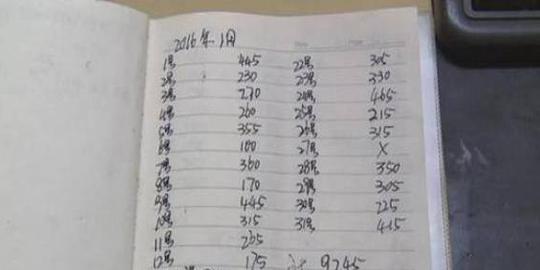 2016年1月
1号 445 22号 305
2号 230 23号 330
3号 270 24号 465
4号 260 25号 215
5号 355 26号 315
6号 100 27号 X
7号 360 28号 350
8号 170 29号 305
9号 445 30号 225
10号 315 31号 415
11号 265
12号 175 9245